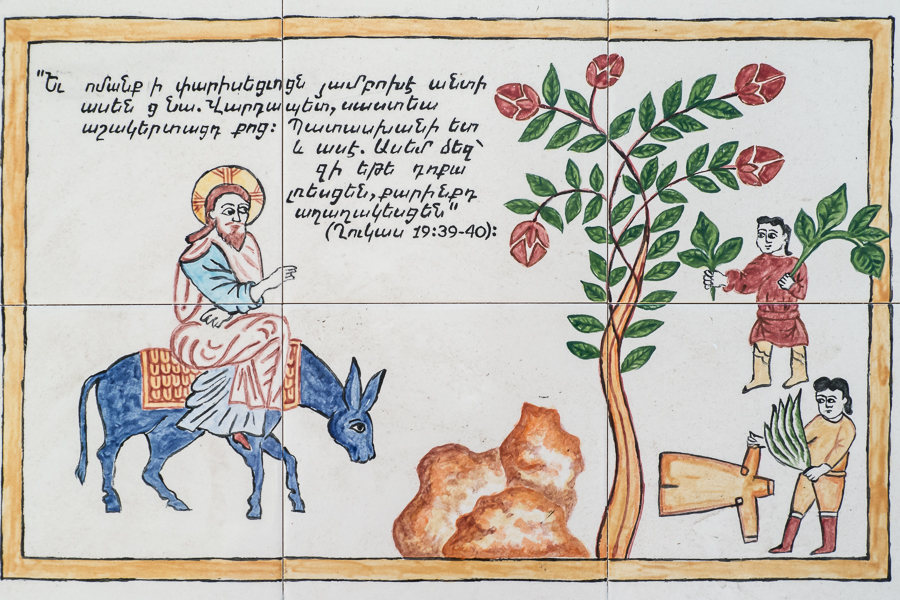 "Եւ ոմանք ի փարիսեցւոցն յամբոխէ անտի
ասեն ց նա. Վարդապետ, սաստեա
աշակերտացդ քոց: Պատասխանի ետ
և ասէ. Ասեմ ձեզ՝
զի եթե դոքա
լռեսցեն, քարինքդ
աղաղակեսցեն"
(Ղուկաս 19:39-40):